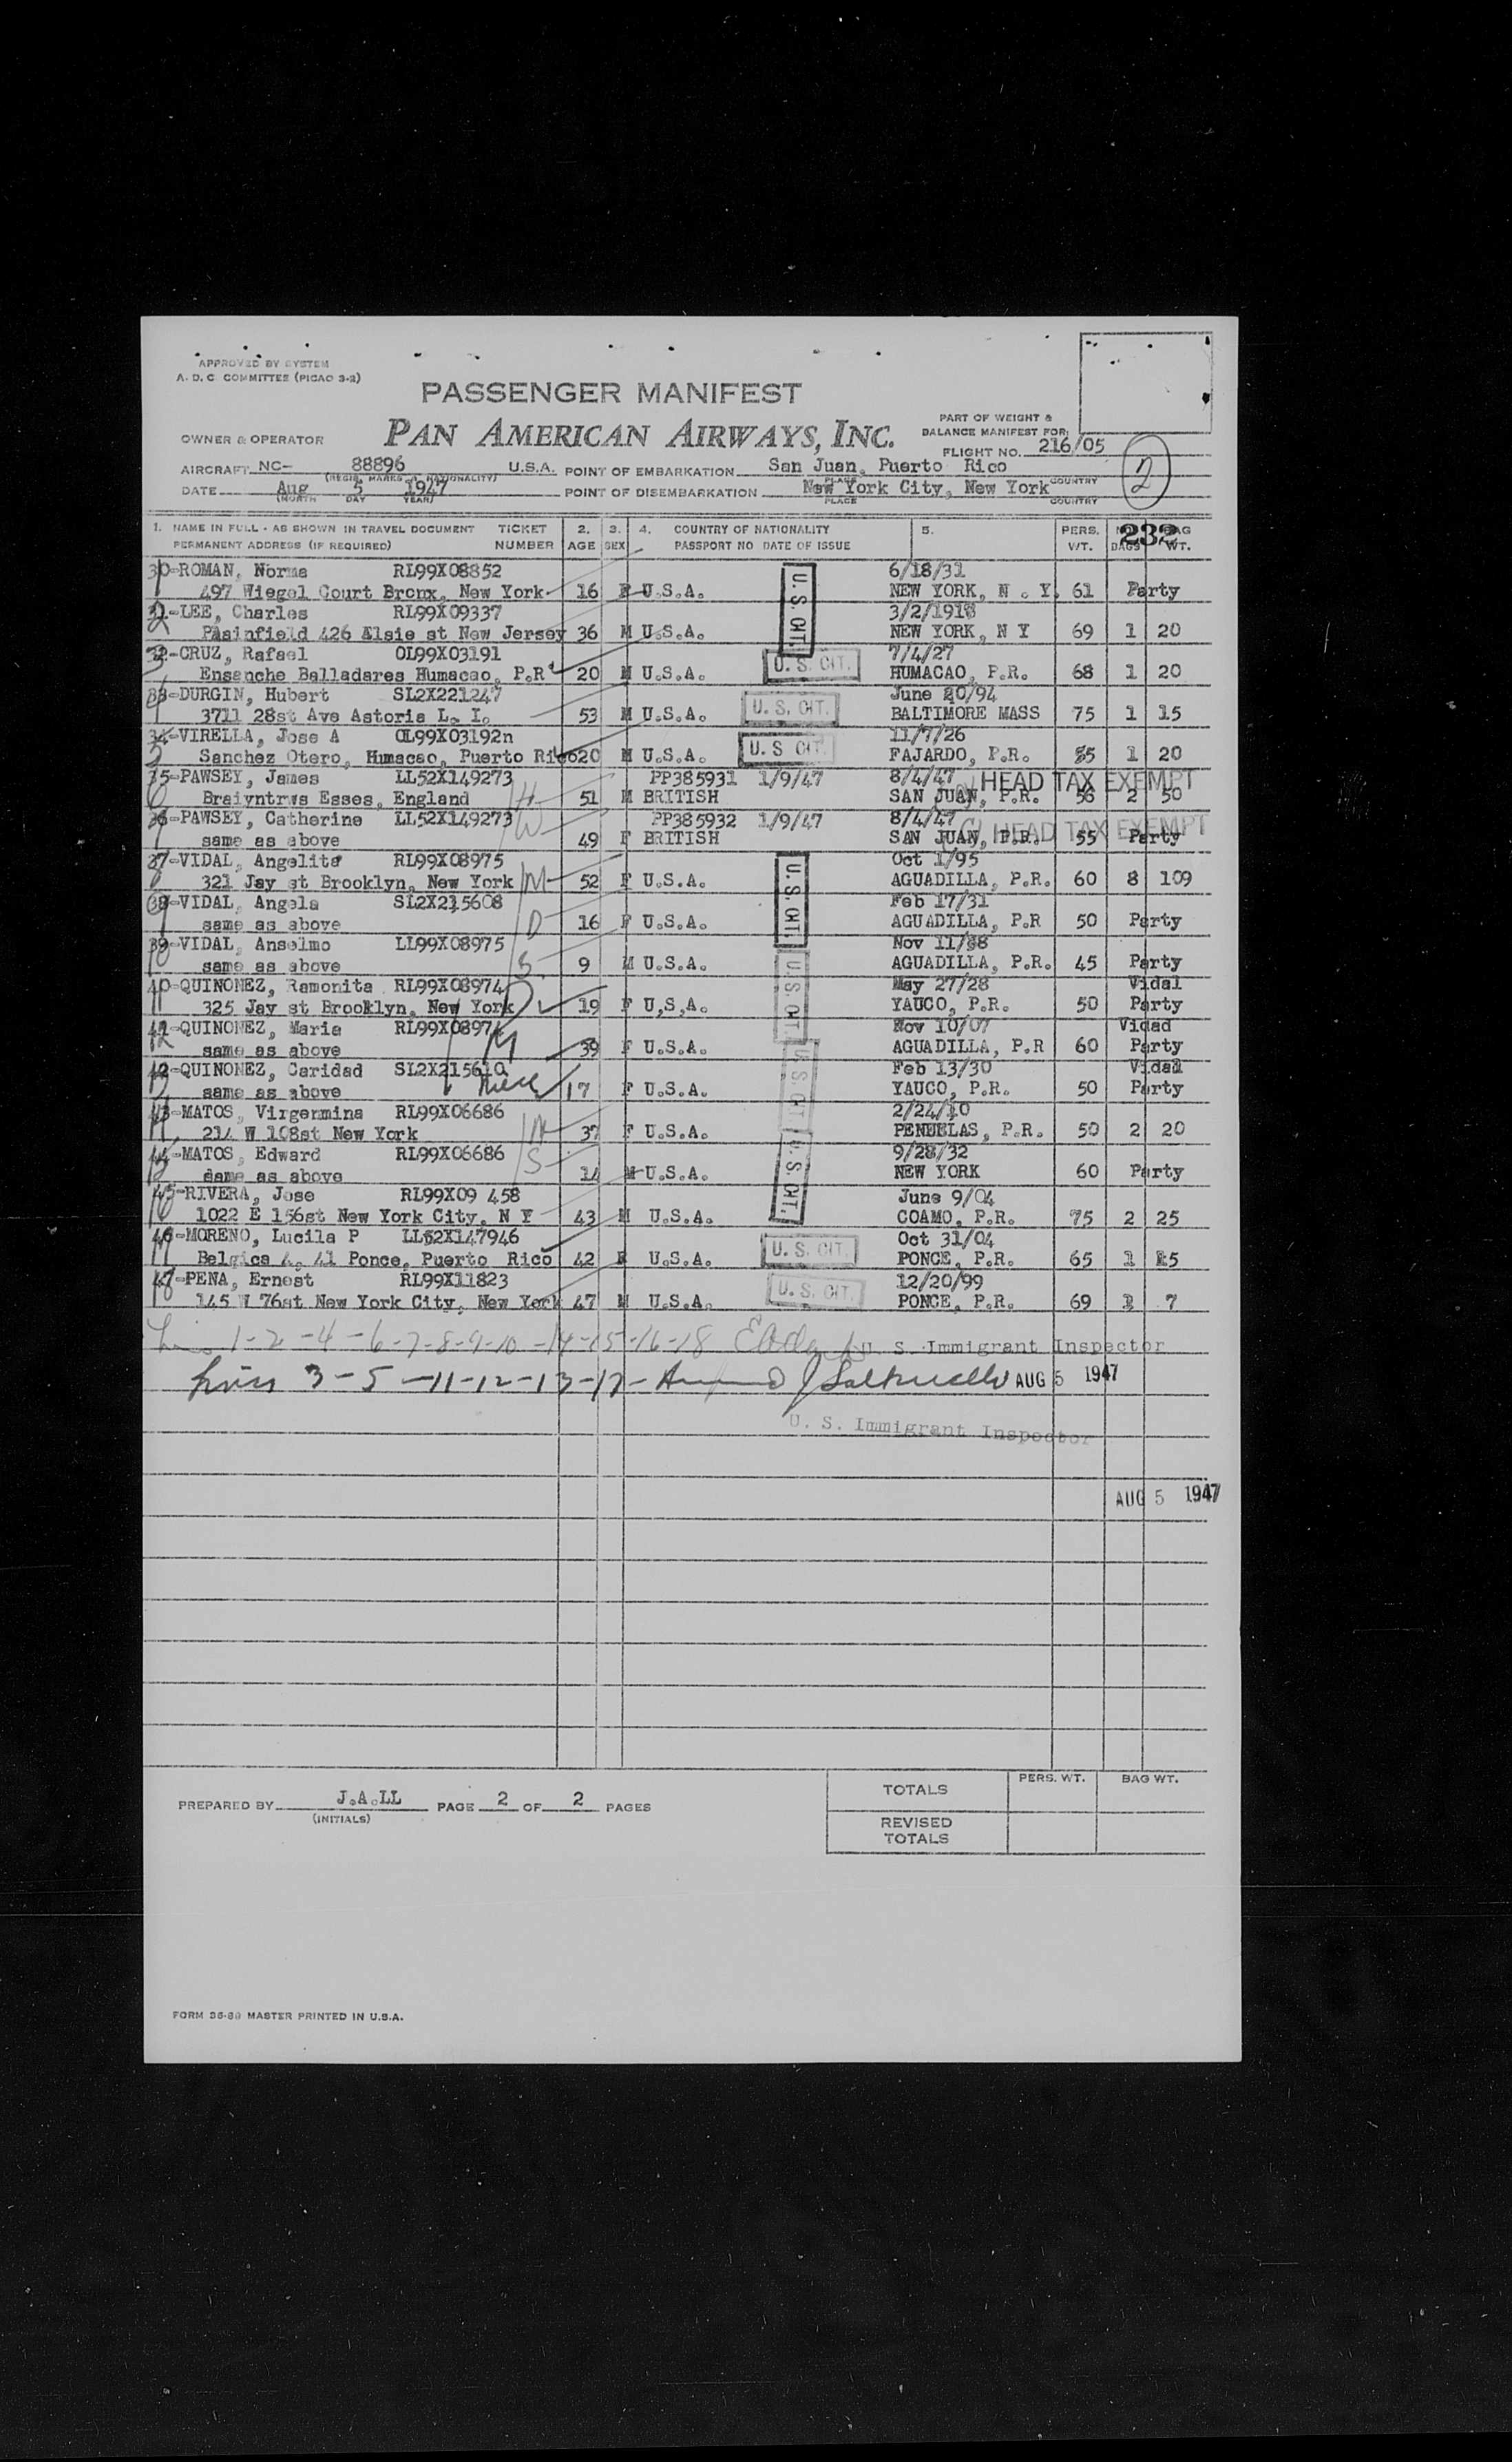 APPROVED BY SYSTEM
A. D. C. COMMITTEE (PICAO 3-2)
PASSENGER MANIFEST
PAN AMERICAN AIRWAYS, INC.
OWNER & OPERATOR
PART OF WEIGHT &
BALANCE MANIFEST FOR:
FLIGHT NO. 216/05
2
AIRCRAFT NC- 88896 U.S.A. POINT OF EMBARKATION San Juan, Puerto Rico
(REGIS. MARKS & NATIONALITY) PLACE COUNTRY
DATE Aug 5 1947 POINT OF DISEMBARKATION New York City, New York
(MONTH DAY YEAR) PLACE COUNTRY
1. NAME IN FULL - AS SHOWN IN TRAVEL DOCUMENT TICKET 2. 3. 4. COUNTRY OF NATIONALITY 5. PERS. 232 BAG
PERMANENT ADDRESS (IF REQUIRED) NUMBER AGE SEX PASSPORT NO DATE OF ISSUE WT. BAGS WT.
30-ROMAN, Norma RL99X08852 6/18/31
497 Wiegel Court Bronx, New York 16 F U.S.A. U.S. CIT. NEW YORK, N . Y. 61 Party
31-LEE, Charles RL99X09337
Plainfield 426 Elsie st New Jersey 36 M U.S.A. NEW YORK, N Y 69 1 20
32-CRUZ, Rafael OL99X03191 7/4/27
Ensanche Balladares Humacao, P.R 20 M U.S.A. U. S. CIT. HUMACAO, P.R. 68 1 20
33-DURGIN, Hubert SL2X221247 June 20/94
3711 28st Ave Astoria L. I. 53 M U.S.A. U. S. CIT. BALTIMORE MASS 75 1 15
34-VIRELLA, Jose A OL99X03192n 11/7/26
Sanchez Otero, Humacao, Puerto Rico 20 M U.S.A. U. S CIT. FAJARDO, P.R. 1 20
35-PAWSEY, James LL52X149273 PP385931 1/9/47 8/4/47 HEAD TAX EXEMPT
Braiyntrws Esses, England H 51 M BRITISH SAN JUAN, P.R. 56 2 50
36-PAWSEY, Catherine LL52X149273 PP385932 1/9/47 8/4/47 HEAD TAX EXEMPT
same as above W 49 F BRITISH SAN JUAN, P.R. 55 Party
37-VIDAL, Angelita RL99X08975 Oct 1/95
321 Jay st Brooklyn, New York M 52 F U.S.A. U.S. CIT. AGUADILLA, P.R. 60 8 109
38-VIDAL, Angela SL2X215608 Feb 17/31
same as above D 16 F U.S.A. AGUADILLA, P.R 50 Party
39-VIDAL, Anselmo LL99X08975
same as above S 9 M U.S.A. U.S. CIT. AGUADILLA, P.R. 45 Party
40-QUINONEZ, Ramonita RL99X08974 May 27/28 Vidal
325 Jay st Brooklyn, New York 19 F U,S,A. YAUCO, P.R. 50 Party
41-QUINONEZ, Maria RL99X08974 Nov 10/07 Vidad
same as above M 39 F U.S.A. AGUADILLA, P.R 60 Party
42-QUINONEZ, Caridad SL2X215610 U.S. CIT Feb 13/30 Vidad
same as above Niece 17 F U.S.A. YAUCO, P.R. 50 Party
43-MATOS, Virgermina RL99X06686 2/24/10
214 W 108st New York M 37 F U.S.A. PENUELAS, P.R. 50 2 20
44-MATOS, Edward RL99X06686 9/28/32
same as above S 14 M U.S.A. U.S. CIT. NEW YORK 60 Party
45-RIVERA, Jose RL99X09 458 June 9/04
1022 E 156st New York City, N Y 43 M U.S.A. COAMO, P.R. 75 2 25
46-MORENO, Lucila P LL52X147946 Oct 31/04
Belgica A, 41 Ponce, Puerto Rico 42 F U.S.A. U. S. CIT. PONCE, P.R. 65 1 15
47-PENA, Ernest RL99X11823 12/20/99
145 W 76st New York City, New York 47 M U.S.A. U. S. CIT. PONCE, P.R. 69 7
1-2-4-6-7-8-9-10-14-15-16-18 U. S. Immigrant Inspector
Lines 3-5-11-12-13-17- AUG 5 1947
U. S. Immigrant Inspector
AUG 5 1947
PERS. WT. BAG WT.
TOTALS
PREPARED BY J.A.LL PAGE 2 OF 2 PAGES
(INITIALS)
REVISED
TOTALS
FORM 36-89 MASTER PRINTED IN U.S.A.